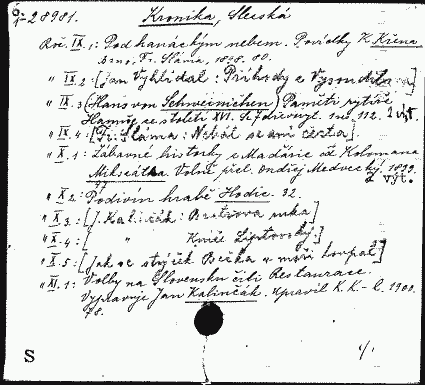 6-28981. Kronika, Slezská
Roč. IX. 1: Pod hanáckým nebem. Povídky K. Křena
Brno, Fr. Sláma, 1898. 80.
" IX 2: [Jan Vyhlídal: Příhody z
" IX. 3 (Hans von Schweinichen) Paměti rytíře
Hanuše ze století XVI. S 7 dřevoryt. 1112. 2 výt.
" IX. 4: [Fr. Sláma: Nebát se ani čerta]
" X. 1: Zábavné historky z Maďarie od Kolomana
Mikszátha. Volně přel. Ondřej Medvecký. 1899.
97 2 výt.
" X 2: Podivín hrabě Hodic. 92.
" X 3: [J. Kalinčák: Bratrova ruka]
" X. 4: [ " Kníže Liptovský.]
" X. 5: [Jak se strýček Bečka v moři koupal]
" XI. 1: Volby na Slovensku čili Restaurace.
Vypravuje Jan Kalinčák. Upravil K. K-l. 1900.
78.
S